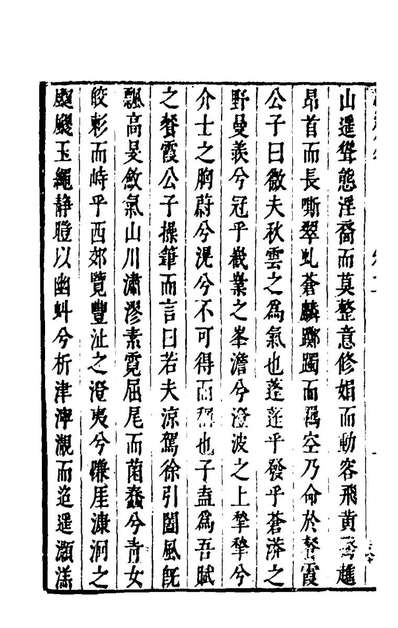 山遲聳態淫裔而莫整意修娟而動容飛黃
昂首而長嘶翠虬蒼麟躑躅而碼空乃命於餐霞
公子曰微夫秋雲之爲氣也蓬蓬乎發乎蒼漭之
野曼羨兮冠乎嶻嶪之峯澹兮澄波之上揫揫兮
介士之胸蔚兮滉兮不可得而也子盍爲吾賦
之餐霞公子操筆而言曰若夫涼駕徐引閶風旣
飄高旻斂氣山川潚漻素霓屈尾而菌蠢兮青女
皎彩而峙乎西郊覽豐沚之澄夷兮隒厓溓泂之
颸颸玉繩靜𦡁以幽蚪兮析津渖灖而迨遲灝溔